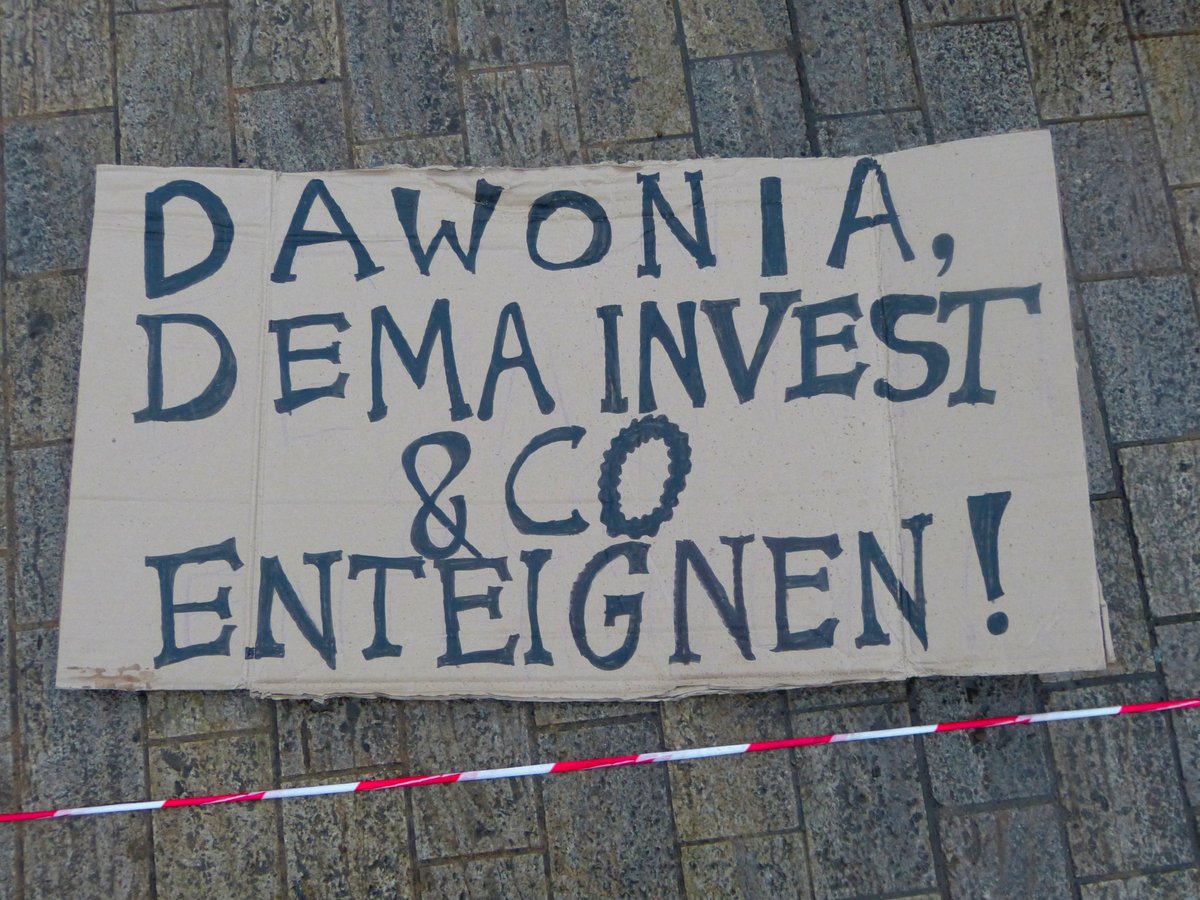 DAWONIA,
DEMA INVEST
& CO
ENTEIGNEN!